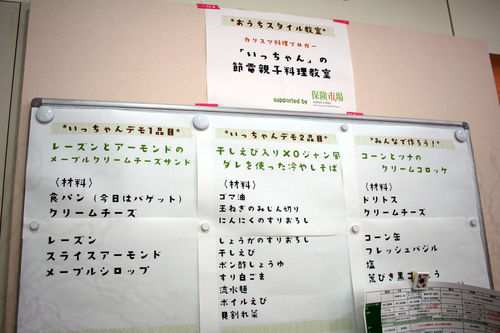 *おうちスタイル教室*
カリスマ料理ブロガー
「いっちゃん」の
節電親子料理教室
supported by 保険市場
*いっちゃんデモ1品目*
レーズンとアーモンドの
メープルクリームチーズサンド
〈材料〉
食パン（今日はバゲット）
クリームチーズ
レーズン
スライスアーモンド
メープルシロップ
*いっちゃんデモ2品目*
干しえび入りXOジャン風
ダレを使った冷やしそば
〈材料〉
ゴマ油
玉ねぎのみじん切り
にんにくのすりおろし
しょうがのすりおろし
干しえび
ポン酢しょうゆ
すり白ごま
流水麺
ボイルえび
貝割れ菜
*みんなで作ろう！*
コーンとツナの
クリームコロッケ
〈材料〉
ドリトス
クリームチーズ
コーン缶
フレッシュバジル
塩
荒びき黒こしょう